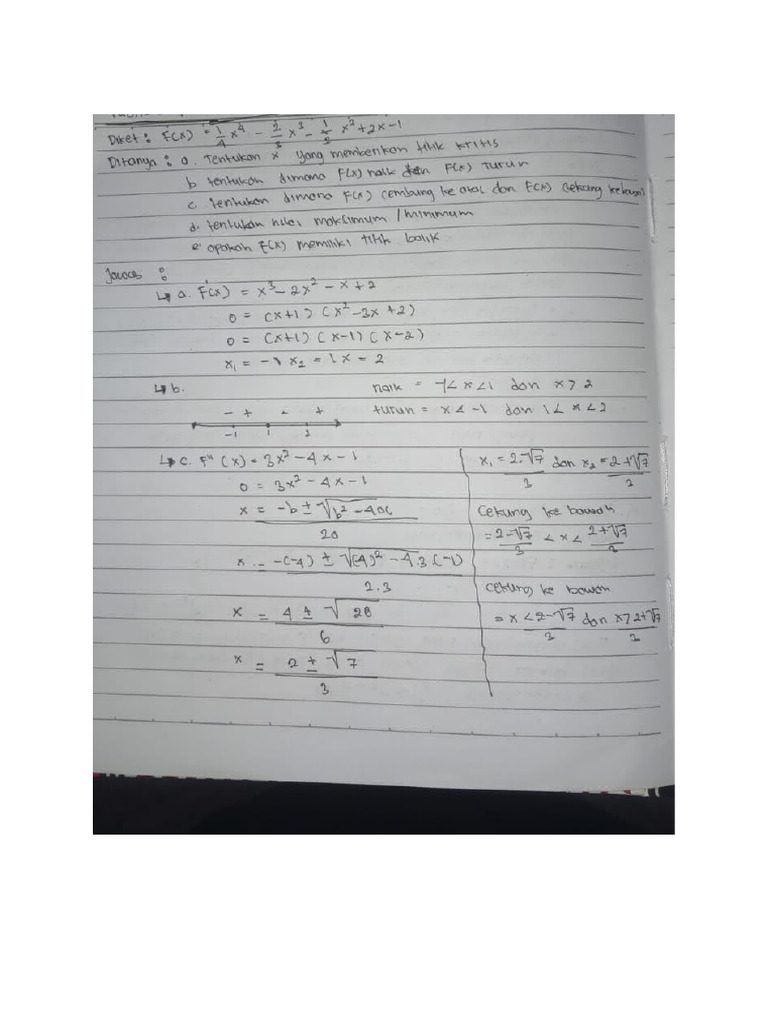 Diket : F(x) = 1/4 x⁴ - 2/3 x³ - 1/2 x² + 2x - 1
Ditanya : a. Tentukan x yang memberikan titik kritis
b tentukan dimana F(x) naik dan F(x) turun
c. tentukan dimana F(x) cembung ke atas dan F(x) cekung kebawah
d. tentukan nilai maksimum / minimum
e. apakah F(x) memiliki titik balik
Jawab :
↳ a. F'(x) = x³ - 2x² - x + 2
0 = (x+1) (x² - 3x + 2)
0 = (x+1) (x-1) (x-2)
x₁ = -1 x₂ = 1 x = 2
↳ b.
- + - +
-1 1 2
naik = -1 < x < 1 dan x > 2
turun = x < -1 dan 1 < x < 2
↳ c. F"(x) = 3x² - 4x - 1
0 = 3x² - 4x - 1
x = -b ± √b² - 4ac / 2a
x = -(-4) ± √(4)² - 4.3 (-1) / 2.3
x = 4 ± √28 / 6
x = 2 ± √7 / 3
x₁ = 2-√7 / 3 dan x₂ = 2+√7 / 3
Cekung ke bawah
= 2-√7 / 3 < x < 2+√7 / 3
Cekung ke bawah
= x < 2-√7 / 3 dan x > 2+√7 / 3